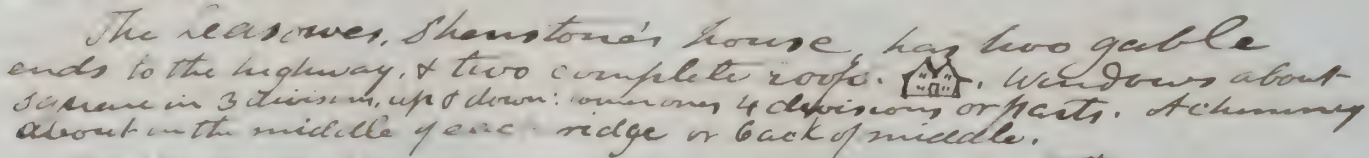 The Leasowes, Shenstone's house, has two gable
ends to the highway, & two complete roofs. Windows about
square in 3 divisions, up & down: lower ones 4 divisions or parts. A chimney
about in the middle of each ridge or back of middle.